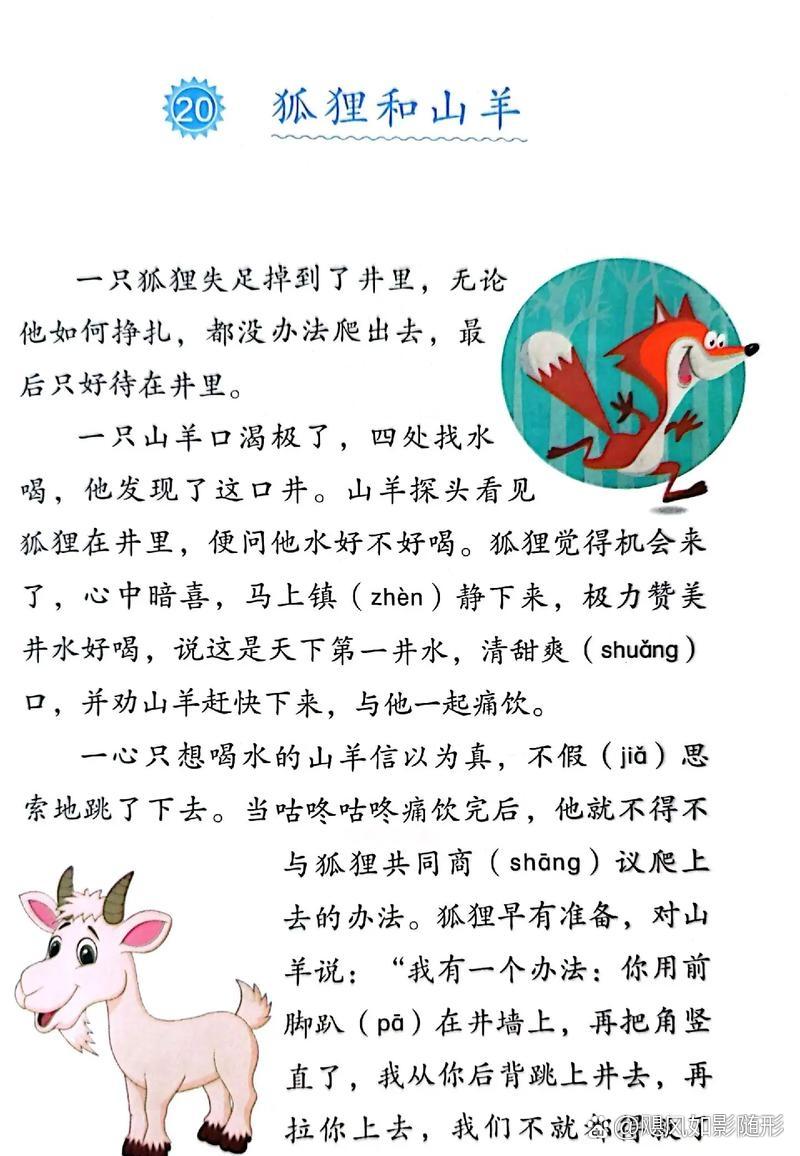 20 狐狸和山羊
一只狐狸失足掉到了井里，无论
他如何挣扎，都没办法爬出去，最
后只好待在井里。
一只山羊口渴极了，四处找水
喝，他发现了这口井。山羊探头看见
狐狸在井里，便问他水好不好喝。狐狸觉得机会来
了，心中暗喜，马上镇（zhèn）静下来，极力赞美
井水好喝，说这是天下第一井水，清甜爽（shuǎng）
口，并劝山羊赶快下来，与他一起痛饮。
一心只想喝水的山羊信以为真，不假（jiǎ）思
索地跳了下去。当咕咚咕咚痛饮完后，他就不得不
与狐狸共同商（shāng）议爬上
去的办法。狐狸早有准备，对山
羊说：“我有一个办法：你用前
脚趴（pā）在井墙上，再把角竖
直了，我从你后背跳上井去，再
拉你上去，我们不就都得救了
@飓风如影随形